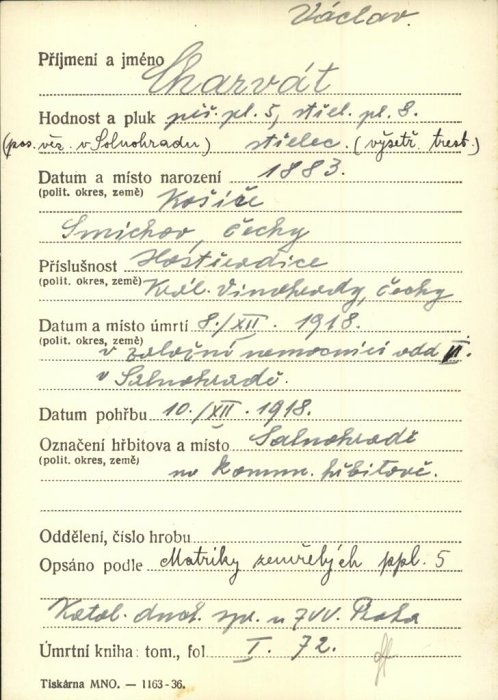 Václav.
Příjmení a jméno Charvát
Hodnost a pluk pěš. pl. 5, střel. pl. 8.
(pos. věz. v Solnohradu) střelec. (vyšetř. trest.)
Datum a místo narození 1883.
(polit. okres, země) Košíře
Smíchov, Čechy
Příslušnost Hostěradice
(polit. okres, země) Král. Vinohrady, Čechy
Datum a místo úmrtí 8./XII. 1918.
(polit. okres, země) v záložní nemocnici odd II.
v Solnohradě.
Datum pohřbu 10./XII. 1918.
Označení hřbitova a místo Solnohradě
(polit. okres, země) na komun. hřbitově.
Oddělení, číslo hrobu
Opsáno podle Matriky zemřelých ppl. 5
Katol. duch. spr. u ZVV. Praha
Úmrtní kniha: tom., fol I. 72.
Tiskárna MNO. — 1163-36.